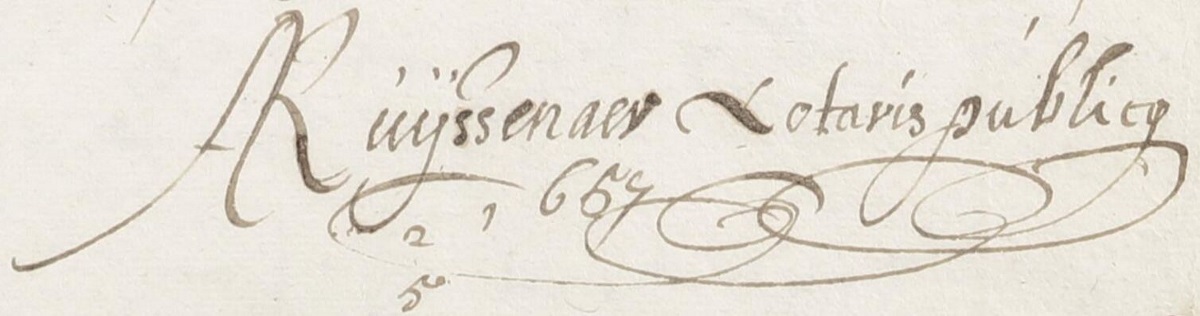 ARuijssenaer Notaris publicq
2 1657
5